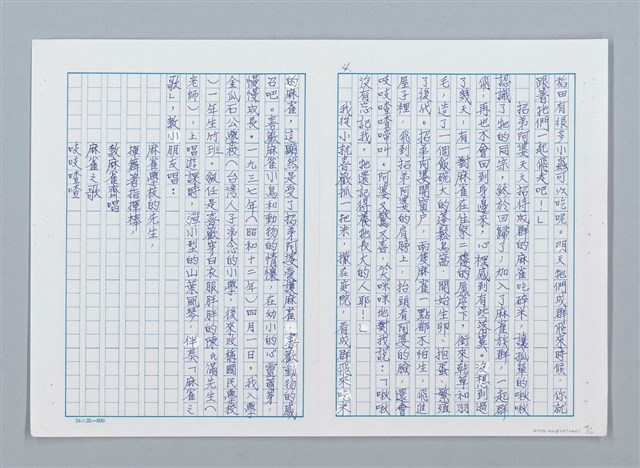 4
稻田有很多小蟲可以吃呢。明天牠們成群飛來時候，你就
跟著牠們一起飛走吧！」
招弟阿婆天天招待成群的麻雀吃碎米，讓孤單的啾啾
認識了牠的同宗，終於回歸了，加入了麻雀族群，一起群
飛，再也不會回到身邊來，心裡感到有些落寞。沒想到過
了幾天，有一對麻雀在住家二樓的屋簷下，銜來乾草和羽
毛，造了一個飯碗大的蓬鬆鳥窩，開始生卵、抱蛋、繁殖
了後代。招弟阿婆開窗戶，兩隻麻雀一點都不怕生，飛進
屋子裡，飛到招弟阿婆的肩膀上，抬頭看阿婆的臉，還會
吱吱喳喳啼叫。阿婆又驚又喜，笑咪咪地對我說：「啾啾
沒有忘記我，牠還記得養牠長大的人耶！」
我從小就喜歡抓一把米，撒在庭院，看成群飛來吃米
的麻雀，這顯然是受了招弟阿婆愛護麻雀，喜歡動物的感
召吧。喜歡麻雀小鳥和動物的情懷，在幼小的心靈萌芽，
慢慢成長。一九三七年（昭和十二年）四月一日，我入學
金瓜石公學校（台灣人子弟念的小學，後來改稱國民學校
）一年生竹班。級任是喜歡穿白衣服胖胖的陳氏滿先生（
老師），上唱遊課時，憑小型的山葉風琴，伴奏「麻雀之
歌」，教小朋友唱：
麻雀學校的先生，
揮舞著指揮棒，
教麻雀齊唱
麻雀之歌
吱吱喳喳
24×25=600